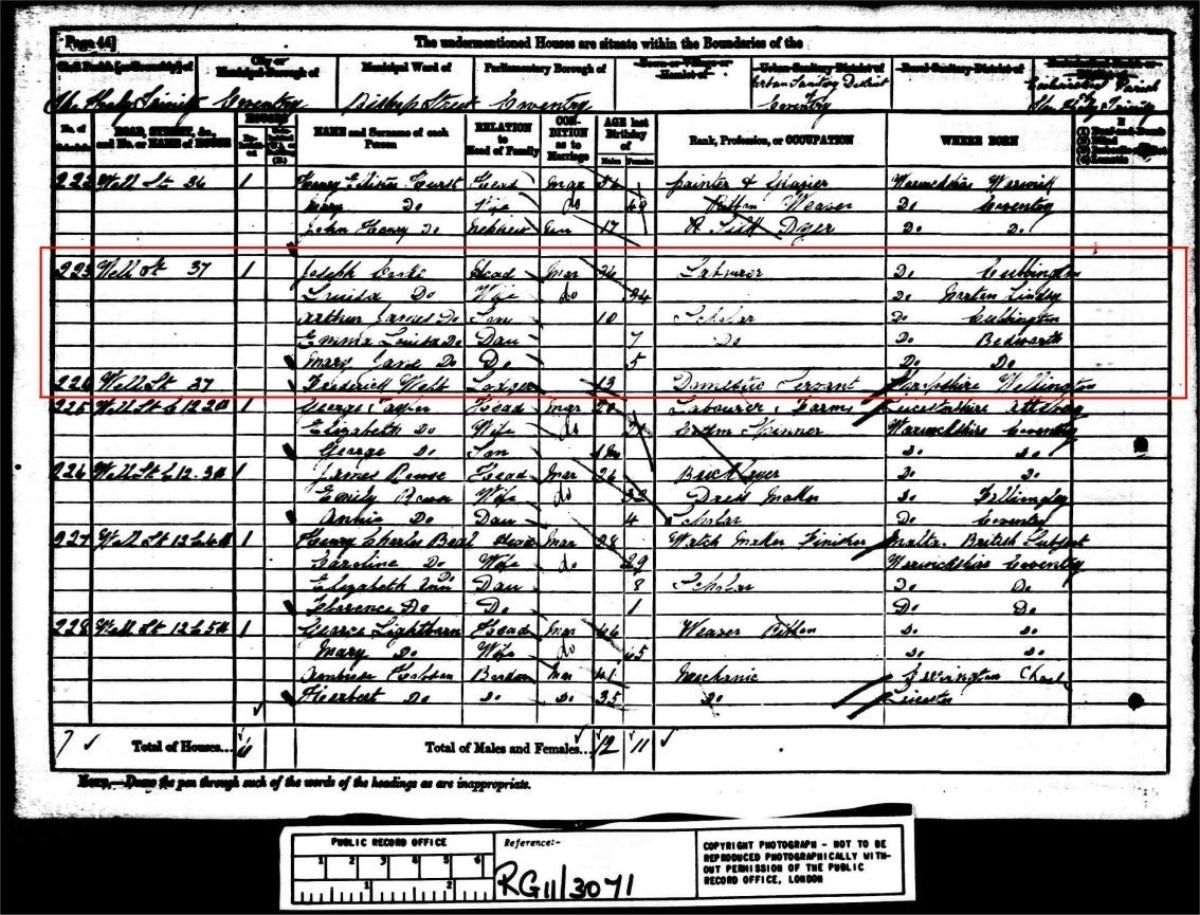 Page 44]
The undermentioned Houses are situate within the Boundaries of the
Civil Parish [or Township] of
City or Municipal Borough of
Municipal Ward of
Parliamentary Borough of
Town or Village or Hamlet of
Urban Sanitary District of
Rural Sanitary District of
Ecclesiastical Parish or District of
Holy Trinity Coventry Bishop Street Coventry Coventry Holy Trinity
No. of Schedule
ROAD, STREET, &c., and No. or NAME of HOUSE
HOUSES
NAME and Surname of each Person
RELATION to Head of Family
CONDITION as to Marriage
AGE last Birthday of
Males Females
Rank, Profession, or OCCUPATION
WHERE BORN
If
(1) Deaf-and-Dumb
(2) Blind
(3) Imbecile or Idiot
(4) Lunatic
222 Well St 36 1 Henry Hurst Head Mar 56 Painter & Glazier Warwickshire Warwick
Mary Do Wife do 49 Ribbon Weaver Do Coventry
John Henry Do Nephew Un 17 Silk Dyer Do Do
223 Well St 37 1 Joseph Head Mar Labourer Do Cubbington
Louisa Do Wife do 34 Do
Arthur James Do Son 10 Scholar Do Cubbington
Emma Louisa Do Dau 7 Do Do Bedworth
Mary Jane Do Do 5 Do Do
224 Well St 37 Frederick Lodger 13 Domestic Servant Wellington
225 Well St 1 George Head Mar 20 Labourer Farms Leicestershire
Elizabeth Do Wife do 21 Spinner Warwickshire Coventry
George Do Son Do Do
226 Well St 1 James Head Mar 26 Bricklayer Do Do
Emily Wife do 32 Dress Maker Do Fillongley
Annie Do Dau 4 Scholar Do Coventry
227 Well St 1 Henry Charles Head Mar 28 Watch Maker Finisher Malta British Subject
Caroline Do Wife do 29 Warwickshire Coventry
Elizabeth Ann Do Dau 8 Scholar Do Do
Florence Do Do 1 Do Do
228 Well St 1 George Lightburn Head Mar 46 Weaver Ribbon Do Do
Mary Do Wife do 45 Do Do
Ambrose Mar 41 Mechanic
Herbert Do Do Do 35 Do Leicester
7 Total of Houses... Total of Males and Females... 12 11
NOTE.—Draw the pen through such of the words of the headings as are inappropriate.
PUBLIC RECORD OFFICE
1 2 3 4 5 6
1 2
Reference:-
RG11/3071
COPYRIGHT PHOTOGRAPH - NOT TO BE
REPRODUCED PHOTOGRAPHICALLY WITH-
OUT PERMISSION OF THE PUBLIC
RECORD OFFICE, LONDON